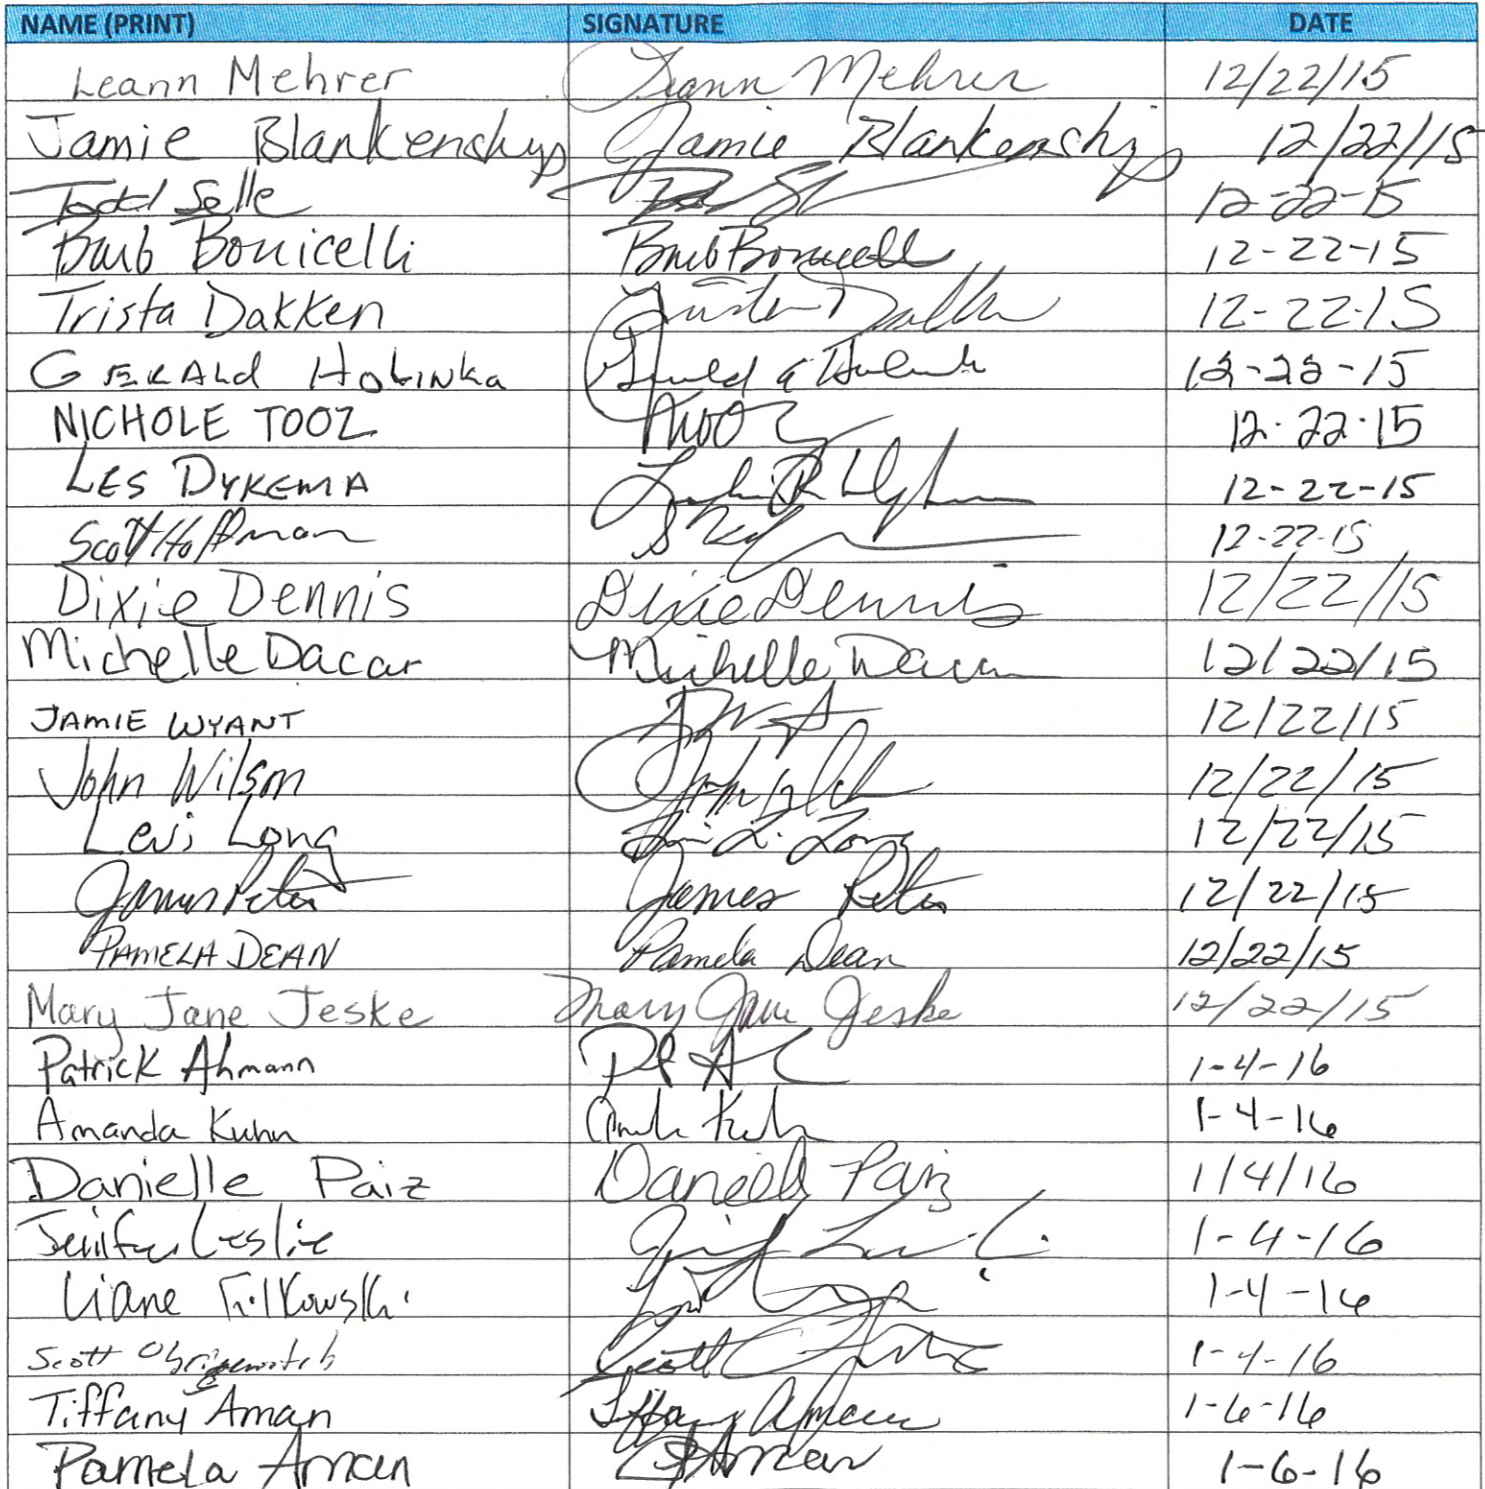 NAME (PRINT) SIGNATURE DATE
Leann Mehrer Leann Mehrer 12/22/15
Jamie Blankenship Jamie Blankenship 12/22/15
Todd Selle 12-22-15
Barb Bonicelli Barb Bonicelli 12-22-15
Trista Dakken Trista Dakken 12-22-15
GERALD Hobinka Gerald 12-22-15
NICHOLE TOOZ 12-22-15
LES DYKEMA 12-22-15
Scott Hoffman 12-22-15
Dixie Dennis Dixie Dennis 12/22/15
Michelle Dacar Michelle Dacar 12/22/15
JAMIE WYANT 12/22/15
John Wilson 12/22/15
Levi Long Levi L. Long 12/22/15
James Peter James Peter 12/22/15
PAMELA DEAN Pamela Dean 12/22/15
Mary Jane Jeske Mary Jane Jeske 12/22/15
Patrick Ahmann 1-4-16
Amanda Kuhn 1-4-16
Danielle Paiz Danielle Paiz 1/4/16
Jenifer Leslie 1-4-16
Liane 1-4-16
Scott Scott 1-4-16
Tiffany Aman Tiffany Aman 1-6-16
Pamela Aman PAman 1-6-16